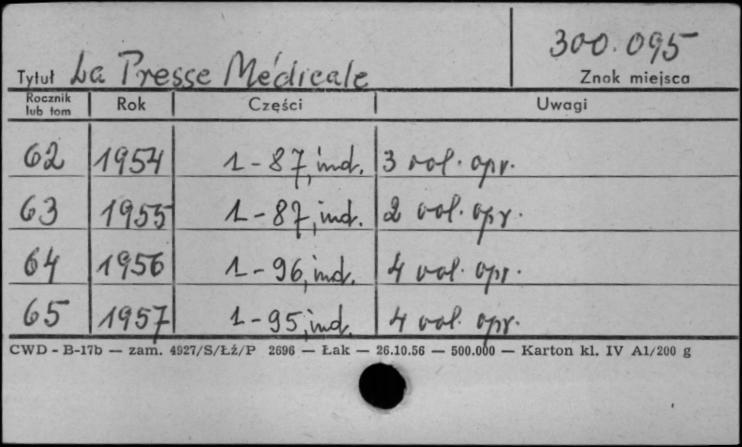 300.095
Tytuł La Presse Médicale Znak miejsca
Rocznik lub tom Rok Części Uwagi
62 1954 1-87, ind. 3 vol. opr.
63 1955 1-87, ind. 2 vol. opr.
64 1956 1-96, ind. 4 vol. opr.
65 1957 1-95, ind. 4 vol. opr.
CWD - B-17b — zam. 4927/S/Łź/P 2696 — Łak — 26.10.56 — 500.000 — Karton kl. IV A1/200 g